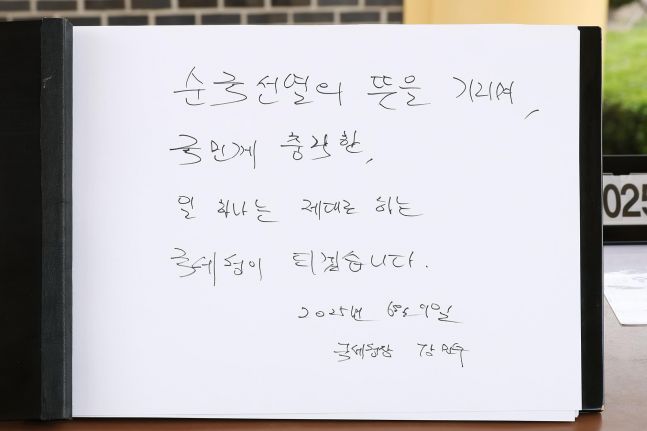 순국선열의 뜻을 기리며,
국민께 충직한,
일 하나는 제대로 하는
국세청이 되겠습니다.
2025년 6월 9일
국세청장 강민수
025